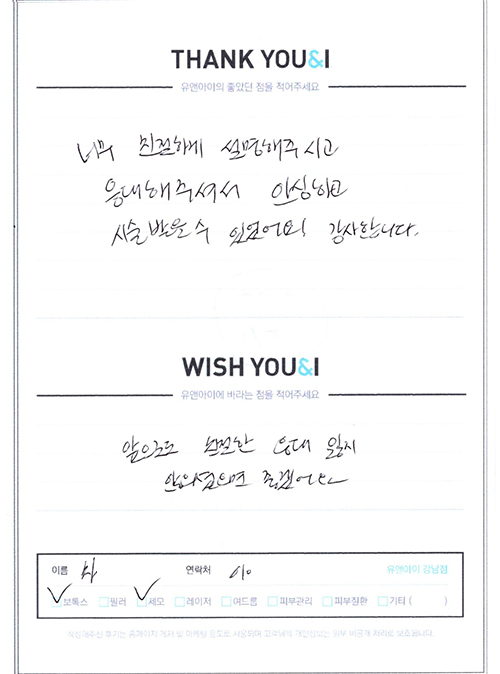 THANK YOU&I
유앤아이의 좋았던 점을 적어주세요
너무 친절하게 설명해주시고
응대해주셔서 안심하고
시술받을수 있었어요! 감사합니다.
WISH YOU&I
유앤아이에 바라는 점을 적어주세요
앞으로도 친절한 응대 잃지
않으셨으면 좋겠어요~
이름 연락처 010 유앤아이 강남점
보톡스 필러 제모 레이저 여드름 피부관리 피부질환 기타 ( )
작성해주신 후기는 홈페이지 게재 및 마케팅 용도로 사용되며 고객님의 개인정보는 외부 비공개 처리로 보호됩니다.